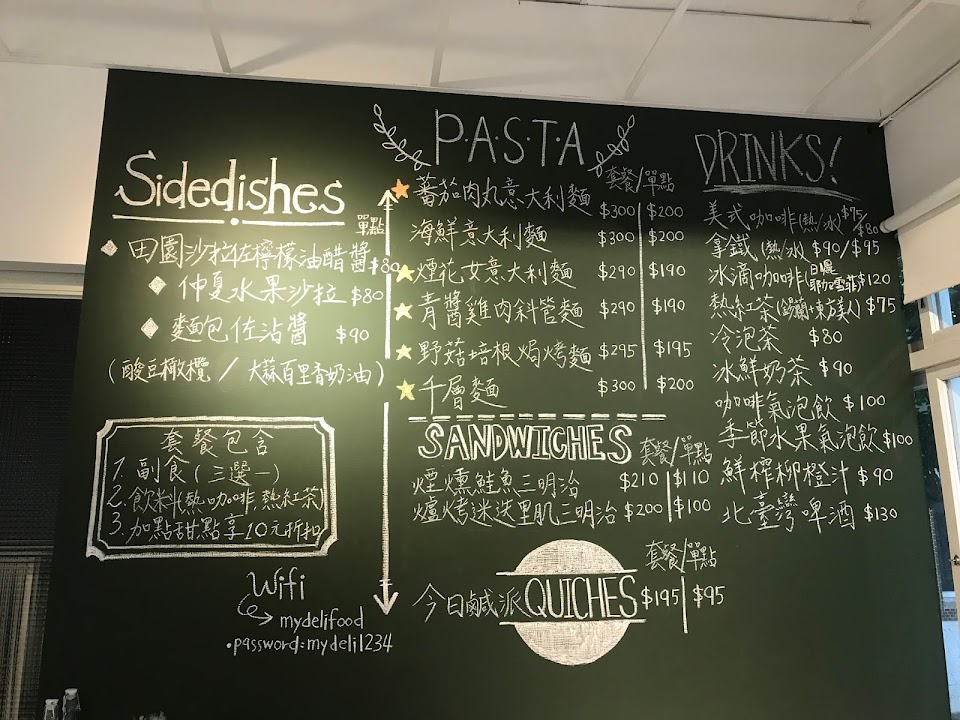 Sidedishes
單點
田園沙拉佐檸檬油醋醬 $80
仲夏水果沙拉 $80
麵包佐沾醬 $90
(酸豆橄欖 / 大蒜百里香奶油)
套餐包含
1. 副食(三選一)
2. 飲料(熱咖啡.熱紅茶)
3. 加點甜點享10元折扣
Wifi
mydelifood
•password:mydeli1234
P.A.S.T.A
套餐/單點
蕃茄肉丸意大利麵 $300 $200
海鮮意大利麵 $300 $200
煙花女意大利麵 $290 $190
青醬雞肉斜管麵 $290 $190
野菇培根焗烤麵 $295 $195
千層麵 $300 $200
SANDWICHES 套餐/單點
煙燻鮭魚三明治 $210 $110
爐烤迷迭里肌三明治 $200 $100
套餐/單點
今日鹹派 QUICHES $195 $95
DRINKS!
美式咖啡(熱/冰) $75/$80
拿鐵(熱/冰) $90/$95
冰滴咖啡(日曬耶加雪菲) $120
熱紅茶(錫蘭.東方美人) $75
冷泡茶 $80
冰鮮奶茶 $90
咖啡氣泡飲 $100
季節水果氣泡飲 $100
鮮檸柳橙汁 $90
北臺灣啤酒 $130